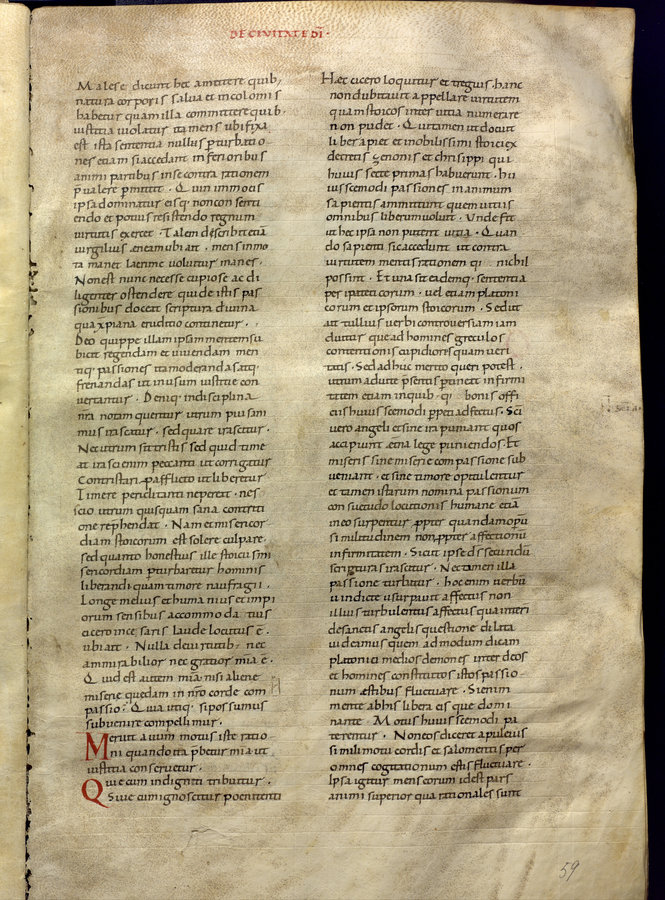 DE CIVITATE DI·
Malese dicunt hec amittere quib;
natura corporis salva et incolomis
habetur quam illa committere quib
iustitia violatur ita mens ubi fixa
est ista sententia nullas pturbatio
nes etiam si accedant inferioribus
animi partibus in se contra rationem
pvalere pmittit · Quin immo eis
ipsa dominatur eisq; non consenti
endo et potius resistendo regnum
virtutis exercet · Talem describit etiā
virgilius aeneam ubi ait · mens inmo
ta manet lacrime volvuntur manes·
Non est nunc necesse cupiose ac di
ligenter ostendere quid de istis pas
sionibus doceat scriptura divina
qua xpiana eruditio continetur ·
Deo quippe illam ipsam mentem su
bicit regendam et iuvandam men
tiq; passiones ita moderandas atq;
frenandas ut in usum iustitie con
vertantur · Deniq; in disciplina
nra non tam queritur utrum pius ani
mus irascatur · sed quare irascatur·
Nec utrum sit tristis sed quid time
at irasci enim peccanti ut corrigatur
Contristari p afflicto ut liberetur
Timere periclitanti ne pereat · nes
scio utrum quisquam sana conciti
one rephendat · Nam et misericor
diam stoicorum est solere culpare·
sed quanto honestius ille stoicus mi
sericordiam pturbaretur hominis
liberandi quam timore naufragii ·
Longe melius et humanius et impi
orum sensibus accommodatius
cicero in cesaris laude locutus ē·
ubi ait · Nulla de virtutib; nec
ammirabilior nec gratior mia ē·
Quid est autem mia nisi aliene
miserie quedam in nro corde com
passio? Qua utiq; si possumus
subvenire compellimur·
Servit autem motus iste ratio
ni quando ita pbetur mia ut
iustitia conservetur·
Quie cum indigenti tribuitur·
Sive cum ignoscitur poenitenti
Haec cicero loquutur et regius hanc
non dubitavit appellare virtutem
quam stoicos inter vitia numerare
non pudet · Qui tamen ut docuit
liber apiet et nobilissimi stoici ex
decretis zenonis et chrisippi qui
huius secte primas habuerunt · hu
iuscemodi passiones in animum
sapientis amittunt quem vitiis
omnibus liberum volunt · Unde fit
ut hec ipsa non putent vitia · Quan
do sapienti sic accedunt ut contra
virtutem mentis rationemqi nichil
possint · Et una sit eademq; sententia
peripateticorum · vel etiam platoni
corum et ipsorum stoicorum · Sed ut
ait tullius verbi controversia iam
diu torquet homines greculos
contentionis cupidiores quam veri
tatis · Sed adhuc merito queri potest·
utrum ad vite psentis ptineat infirmi
tatem etiam in quib · qi · bonis offi
ciis huiuscemodi ppeti adfectus · Sci
vero angeli et sine ira puniant quos
accipiunt aetna lege puniendos · Et
miseris sine miserie compassione sub
veniant · et sine timore opitulentur
et tamen istarum nomina passionum
consuetudo locutionis humane etiā
in eos usurpentur · ppter quandam opū
similitudinem non ppter affectionū
infirmitatem · Sicut ipse ds secundū
scriptura irascitur · Nec tamen illa
passione turbatur · hoc enim verbū
vindicte usurpavit affectus non
illius turbulentus affectus qua interi
de sanctis angelis questione dilata
videamus quem ad modum dicam
platonici medios demones inter deos
et homines constitutos istos passio
num aestibus fluctuare · Si enim
mente ab his libera eisque domi
nante · Motus huiuscemodi pa
terentur · Non eos diceret apuleius
simili motu cordis et salo mentis per
omnes cogitationum estus fluctuare·
Ipsa igitur mens eorum id est pars
animi superior qua rationales sunt
59